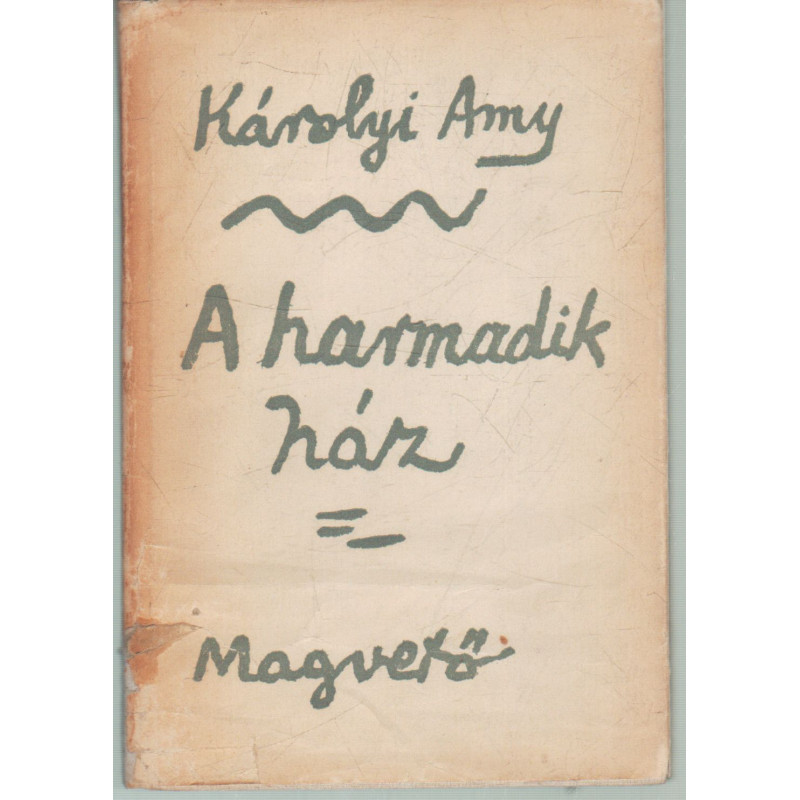 Károlyi Amy
A harmadik
ház
Magvető